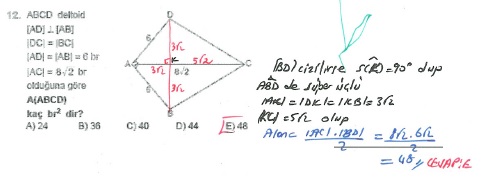 12. ABCD deltoid
[AD] ⊥ [AB]
|DC| = |BC|
|AD| = |AB| = 6 br
|AC| = 8√2 br
olduğuna göre
A(ABCD)
kaç br² dir?
A) 24 B) 36 C) 40 D) 44 E) 48
D
6
3√2
A
K
5√2
C
3√2
8√2
6
3√2
B
[BD] çizilirse s(K̂) = 90° olup
ABD de süper üçlü
|AK| = |DK| = |KB| = 3√2
|KC| = 5√2 olup
Alan = |AC|.|BD| / 2 = 8√2.6√2 / 2
= 48 // CEVAP: E